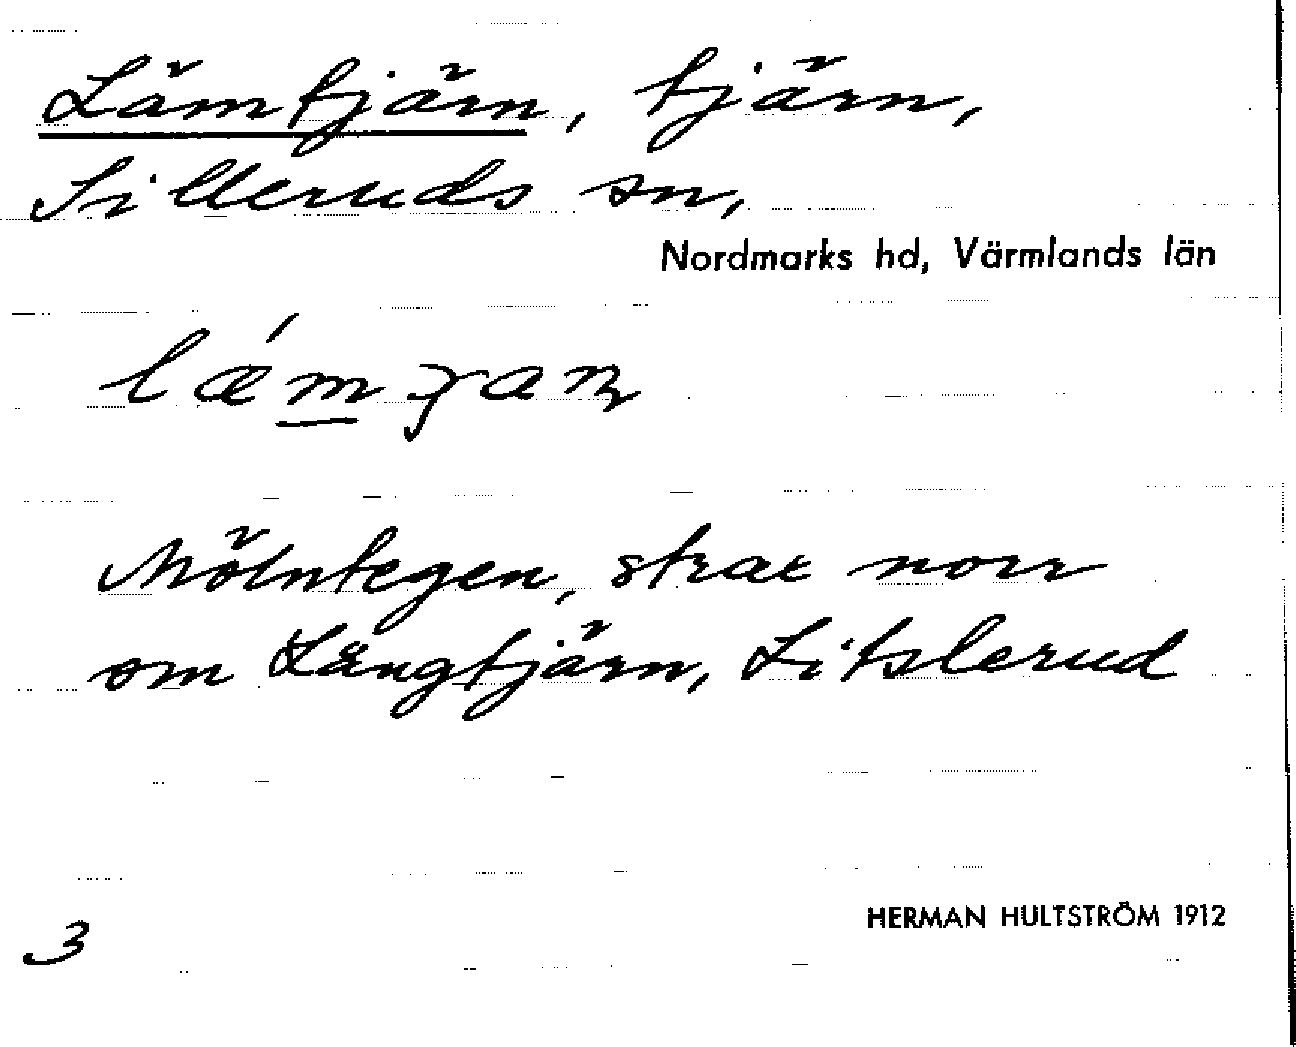 Lämtjärn, tjärn,
Silleruds sn,
Nordmarks hd, Värmlands län
Mölntegen, strax norr
om Långtjärn, Litslerud
HERMAN HULTSTRÖM 1912
3